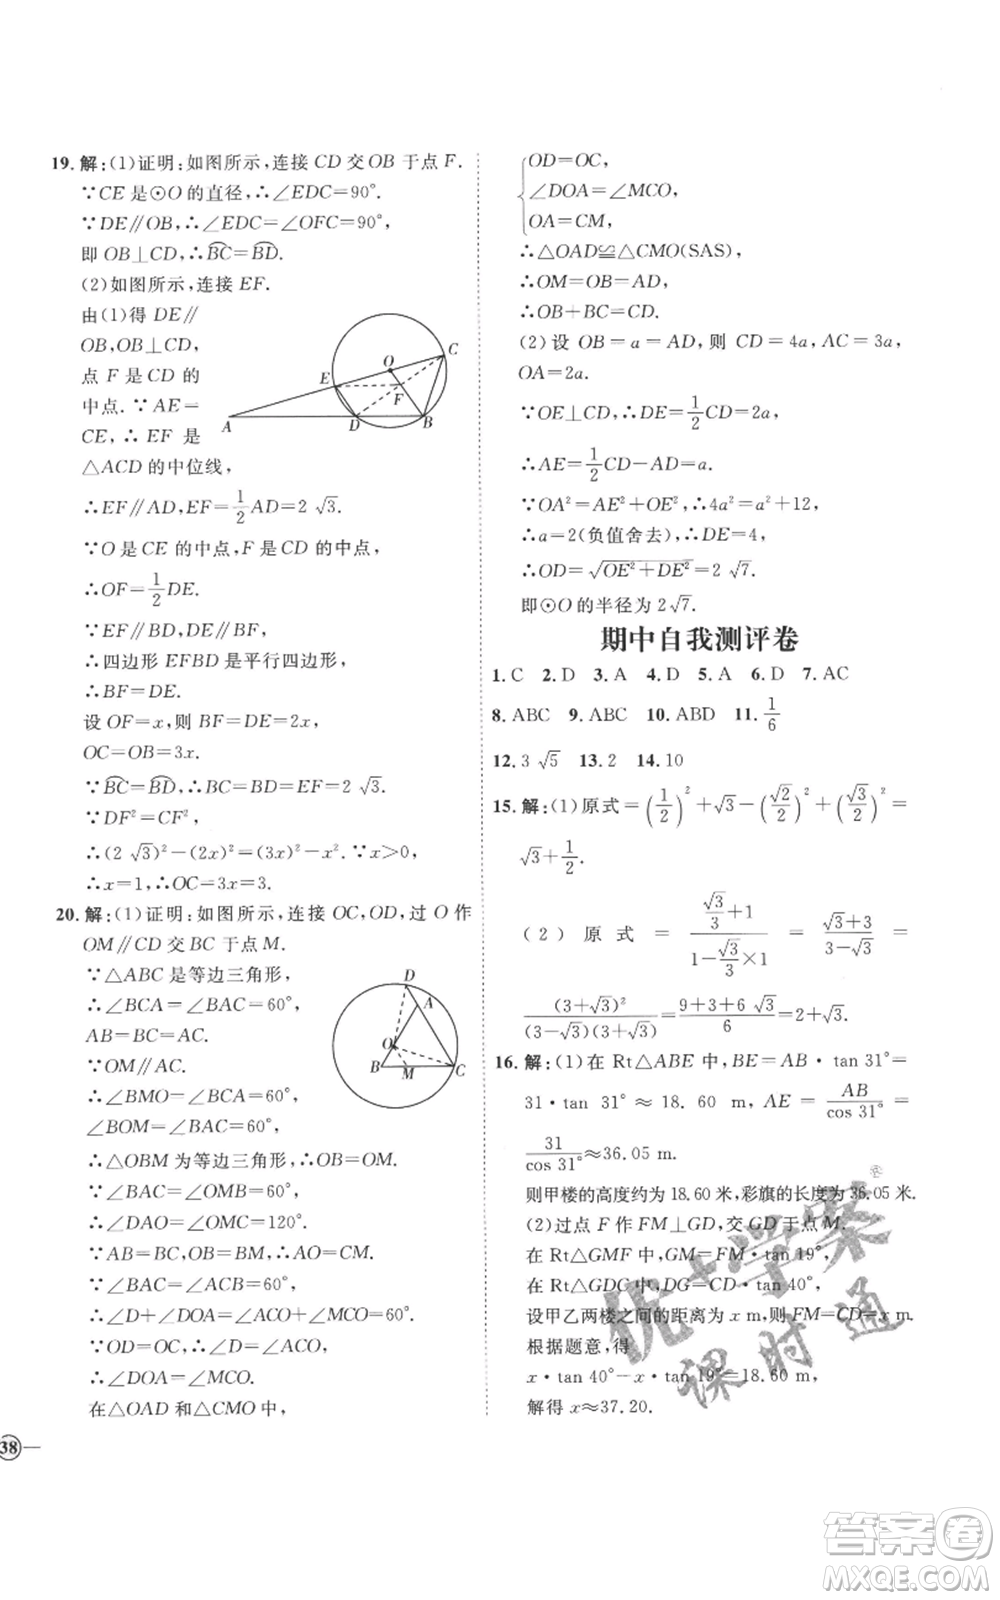 19. 解:(1)证明:如图所示,连接 CD 交 OB 于点 F.
∵CE 是⊙O 的直径,∴∠EDC=90°.
∵DE∥OB,∴∠EDC=∠OFC=90°,
即 OB⊥CD,∴⌒BC=⌒BD.
(2)如图所示,连接 EF.
由(1)得 DE∥
OB,OB⊥CD,
点 F 是 CD 的
中点. ∵AE=
CE,∴ EF 是
△ACD 的中位线,
∴EF∥AD,EF=1/2AD=2√3.
∵O 是 CE 的中点,F 是 CD 的中点,
∴OF=1/2DE.
∵EF∥BD,DE∥BF,
∴四边形 EFBD 是平行四边形,
∴BF=DE.
设 OF=x,则 BF=DE=2x,
OC=OB=3x.
∵⌒BC=⌒BD,∴BC=BD=EF=2√3.
∵DF²=CF²,
∴(2√3)²-(2x)²=(3x)²-x². ∵x>0,
∴x=1,∴OC=3x=3.
A
B
C
D
E
F
O
20. 解:(1)证明:如图所示,连接 OC,OD,过 O 作
OM∥CD 交 BC 于点 M.
∵△ABC 是等边三角形,
∴∠BCA=∠BAC=60°,
AB=BC=AC.
∵OM∥AC,
∴∠BMO=∠BCA=60°,
∠BOM=∠BAC=60°,
∴△OBM 为等边三角形,∴OB=OM.
∵∠BAC=∠OMB=60°,
∴∠DAO=∠OMC=120°.
∵AB=AC,OB=BM,∴OA=CM.
∵∠BAC=∠ACB=60°,
∴∠D+∠DOA=∠ACO+∠MCO=60°.
∵OD=OC,∴∠D=∠ACO,
∴∠DOA=∠MCO.
在△OAD 和△CMO 中,
D
A
O
B
M
C
38
OD=OC,
∠DOA=∠MCO,
OA=CM,
∴△OAD≌△CMO(SAS).
∴OM=OB=AD,
∴OB+BC=CD.
(2)设 OB=a=AD,则 CD=4a,AC=3a,
OA=2a.
∵OE⊥CD,∴DE=1/2CD=2a,
∴AE=1/2CD-AD=a.
∵OA²=AE²+OE²,∴4a²=a²+12,
∴a=2(负值舍去),∴DE=4,
∴OD=√(OE²+DE²)=2√7.
即⊙O 的半径为 2√7.
期中自我测评卷
1. C 2. D 3. A 4. D 5. A 6. D 7. AC
8. ABC 9. ABC 10. ABD 11. 1/6
12. 3√5 13. 2 14. 10
15. 解:(1)原式=(1/2)²+√3-(√2/2)²+(√3/2)²=
√3+1/2.
(2)原式=(√3/3+1)/(1-√3/3×1)=(√3+3)/(3-√3)=
(3+√3)²/((3-√3)(3+√3))=(9+3+6√3)/6=2+√3.
16. 解:(1)在 Rt△ABE 中,BE=AB·tan 31°=
31·tan 31°≈18.60 m,AE=AB/cos 31°=
31/cos 31°≈36.05 m.
则甲楼的高度约为 18.60 米,彩旗的长度为 36.05 米.
(2)过点 F 作 FM⊥GD,交 GD 于点 M.
在 Rt△GMF 中,GM=FM·tan 19°,
在 Rt△GDC 中,DG=CD·tan 40°,
设甲乙两楼之间的距离为 x m,则 FM=CD=x m.
根据题意,得
x·tan 40°-x·tan 19°=18.60 m,
解得 x≈37.20.
优+学案
课时通
答案卷
MXQE.COM